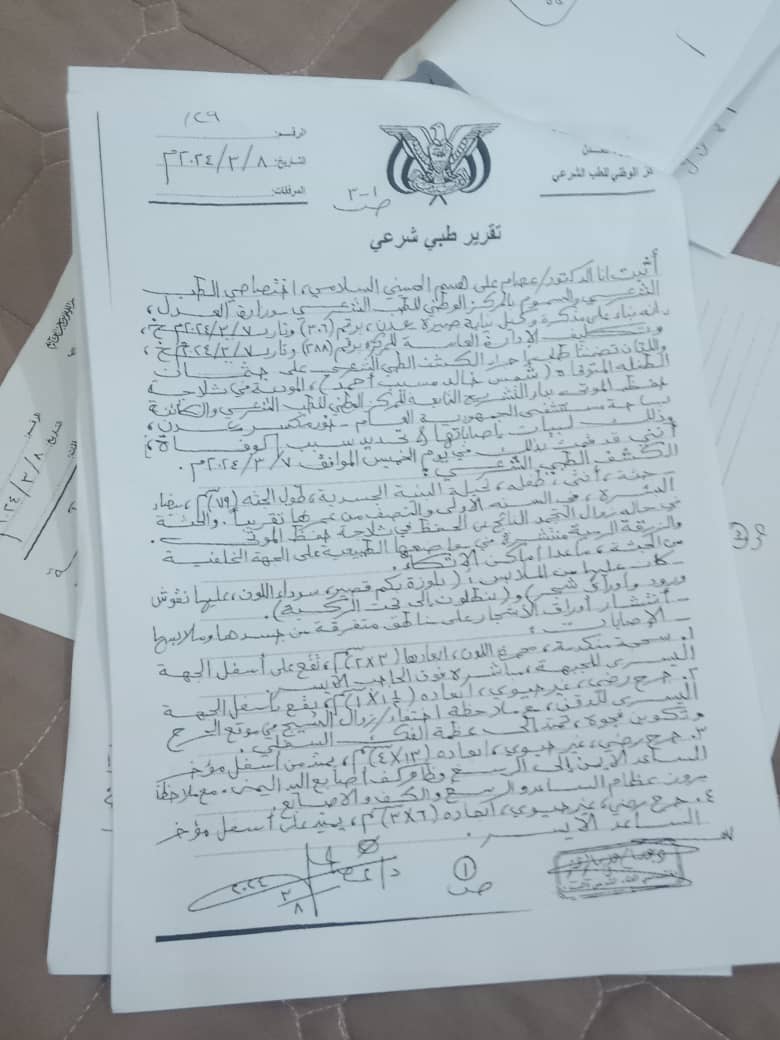 الرقم: ١٢٩
التاريخ: ٢٠٢٤/٣/٨م
المرفقات:
المركز الوطني للطب الشرعي
١-٣
ص
تقرير طبي شرعي
أثبت أنا الدكتور/عصام علي قسم السلامي، اختصاصي الطب
الشرعي والسموم بالمركز الوطني للطب الشرعي بوزارة العدل،
بأنه بناء على مذكرة وكيل نيابة صيرة عدن، برقم (٢٠٦) وتاريخ ٢٠٢٤/٣/٧م،
وتكليف الإدارة العامة للمركز برقم (٢٨٨) وتاريخ ٢٠٢٤/٣/٧م،
واللتان تضمنتا طلب إجراء الكشف الطبي الشرعي على جثمان
الطفلة المتوفاة (شمس خالد مسيب أحمد)، المودعة في ثلاجة
حفظ الموتى بدار التشريح التابعة للمركز الوطني للطب الشرعي والكائنة
بساحة مستشفى الجمهورية العام - خورمكسر عدن،
وذلك لبيان ما إصاباتها؟ تحديد سبب الوفاة؟
أنني قد قمت بذلك في يوم الخميس الموافق ٢٠٢٤/٣/٧م.
الكشف الطبي الشرعي:
- جثة، أنثى، طفلة، نحيلة البنية الجسدية، طول الجثة (٧٩سم)، بيضاء
البشرة، في السنة الأولى والنصف من عمرها تقريباً. والجثة
في حالة زوال التجمد الناتج عن الحفظ في ثلاجة حفظ الموتى.
والزرقة الرمية منتشرة في مواضعها الطبيعية على الجهة الخلفية
من الجثة، ماعدا أماكن الاتكاء.
- كان عليها من الملابس: (بلوزة بكم قصير، سوداء اللون، عليها نقوش
ورود وأوراق شجر) و(بنطلون إلى تحت الركبة).
- انتشار أوراق الأشجار على مناطق متفرقة من جسدها وملابسها
- الإصابات:
١. سحجة متكدمة، محمرة اللون، أبعادها (٢×٣سم)، تقع على أسفل الجهة
اليسرى للجبهة، مباشرة فوق الحاجب الأيسر.
٢. جرح رضي، غير حيوي، أبعاده يقع بأسفل الجهة
اليسرى للذقن، مع ملاحظة اختفاء/زوال النسيج في موقع الجرح
وتكوين فجوة، تمتد إلى عظمة الفك السفلي.
٣. جرح رضي، غير حيوي، أبعاده (٤×١٣سم)، يمتد من أسفل مؤخر
الساعد الأيمن إلى الرسغ وظاهر كف أصابع اليد اليمنى. مع ملاحظة
بروز عظام الساعد والرسغ والكف والأصابع.
٤. جرح رضي، غير حيوي، أبعاده (٣×٦سم)، يمتد على أسفل مؤخر
الساعد الأيسر.
١
ص
٢٠٢٤
٣
٨